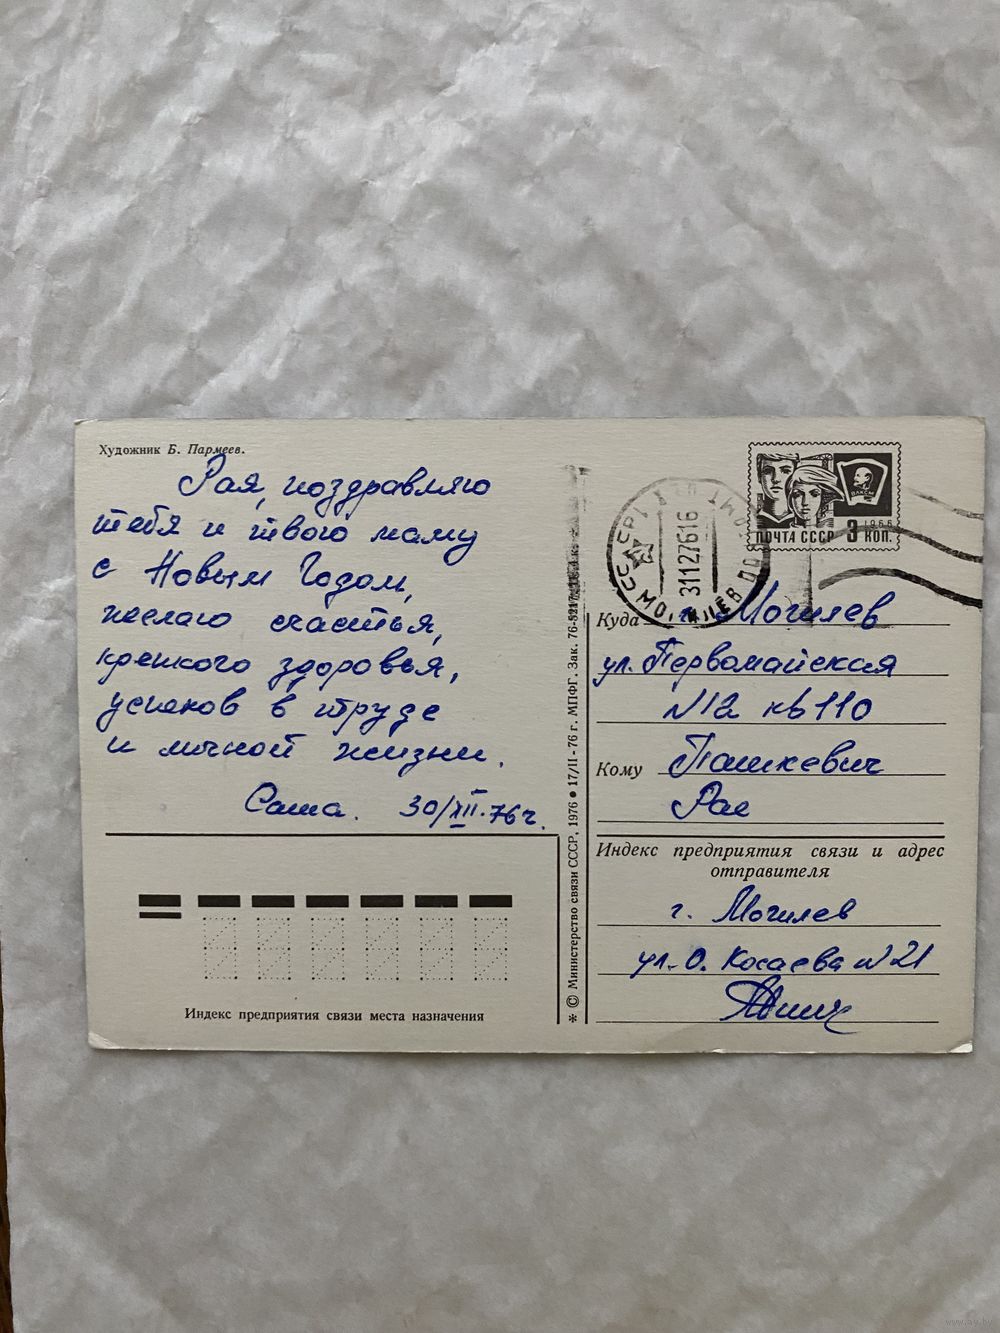 Художник Б. Пармеев.
Рая, поздравляю
тебя и твою маму
с Новым Годом,
желаю счастья,
крепкого здоровья,
успехов в труде
и личной жизни.
Саша. 30/XII-76 г.
Индекс предприятия связи места назначения
* © Министерство связи СССР, 1976 • 17/II-76 г. МПФГ. Зак. 76-
ВЛКСМ
1966
ПОЧТА СССР 3 КОП.
СССР
31127616
МОГИЛЕВ
Куда г. Могилев
ул. Первомайская
N12 кв 110
Кому Пашкевич
Рае
Индекс предприятия связи и адрес
отправителя
г. Могилев
ул. О. Кошевого N 21
www.ay.by